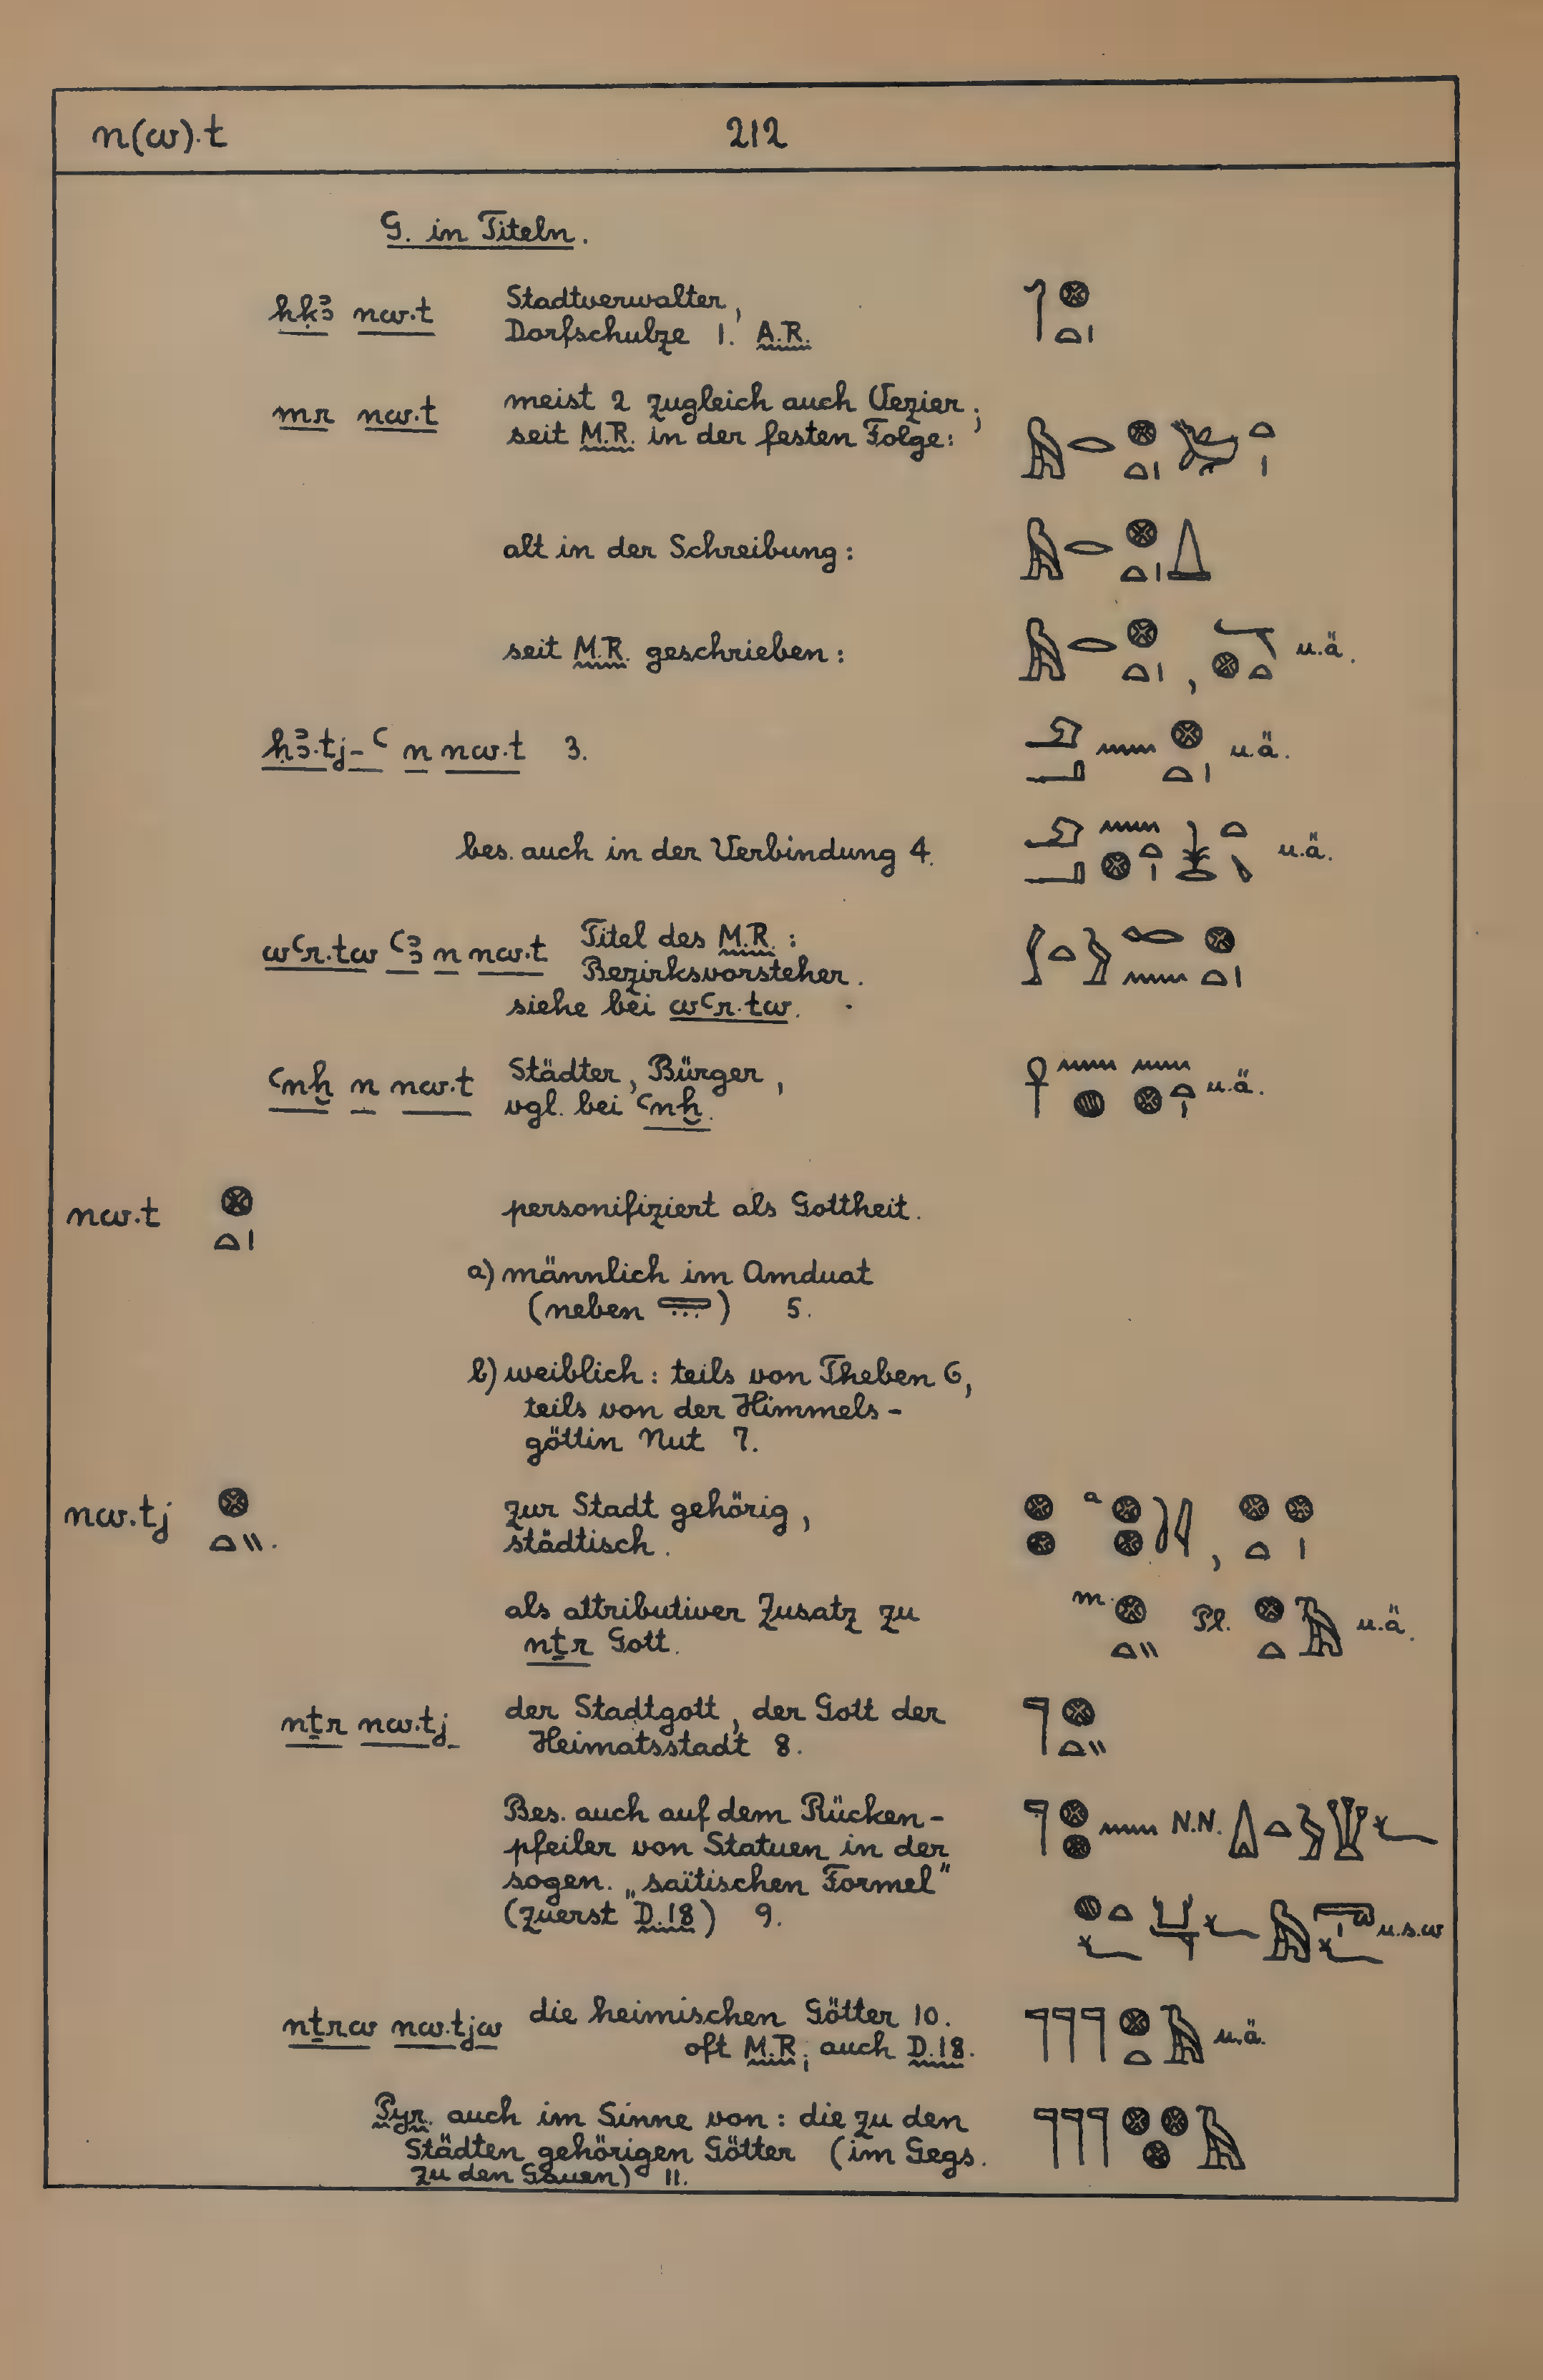 n(w).t 212
G. in Titeln.
ḥḳꜣ nw.t Stadtverwalter,
Dorfschulze 1. A.R.
mr nw.t meist 2 zugleich auch Vezier;
seit M.R. in der festen Folge:
alt in der Schreibung:
seit M.R. geschrieben: , u.ä.
ḥꜣ.tj-ꜥ n nw.t 3. u.ä.
bes. auch in der Verbindung 4. u.ä.
wꜥr.tw ꜥꜣ n nw.t Titel des M.R.:
Bezirksvorsteher.
siehe bei wꜥr.tw.
ꜥnḫ n nw.t Städter, Bürger,
vgl. bei ꜥnḫ. u.ä.
nw.t personifiziert als Gottheit.
a) männlich im Amduat
(neben ) 5.
b) weiblich: teils von Theben 6,
teils von der Himmels-
göttin Nut 7.
nw.tj zur Stadt gehörig,
städtisch. a ,
als attributiver Zusatz zu
nṯr Gott. m. Pl. u.ä.
nṯr nw.tj der Stadtgott, der Gott der
Heimatsstadt 8.
Bes. auch auf dem Rücken-
pfeiler von Statuen in der N.N.
sogen. „saïtischen Formel"
(zuerst D.18) 9. u.s.w
nṯrw nw.tjw die heimischen Götter 10.
oft M.R; auch D.18. u.ä.
Pyr. auch im Sinne von: die zu den
Städten gehörigen Götter (im Gegs.
zu den Gauen) 11.